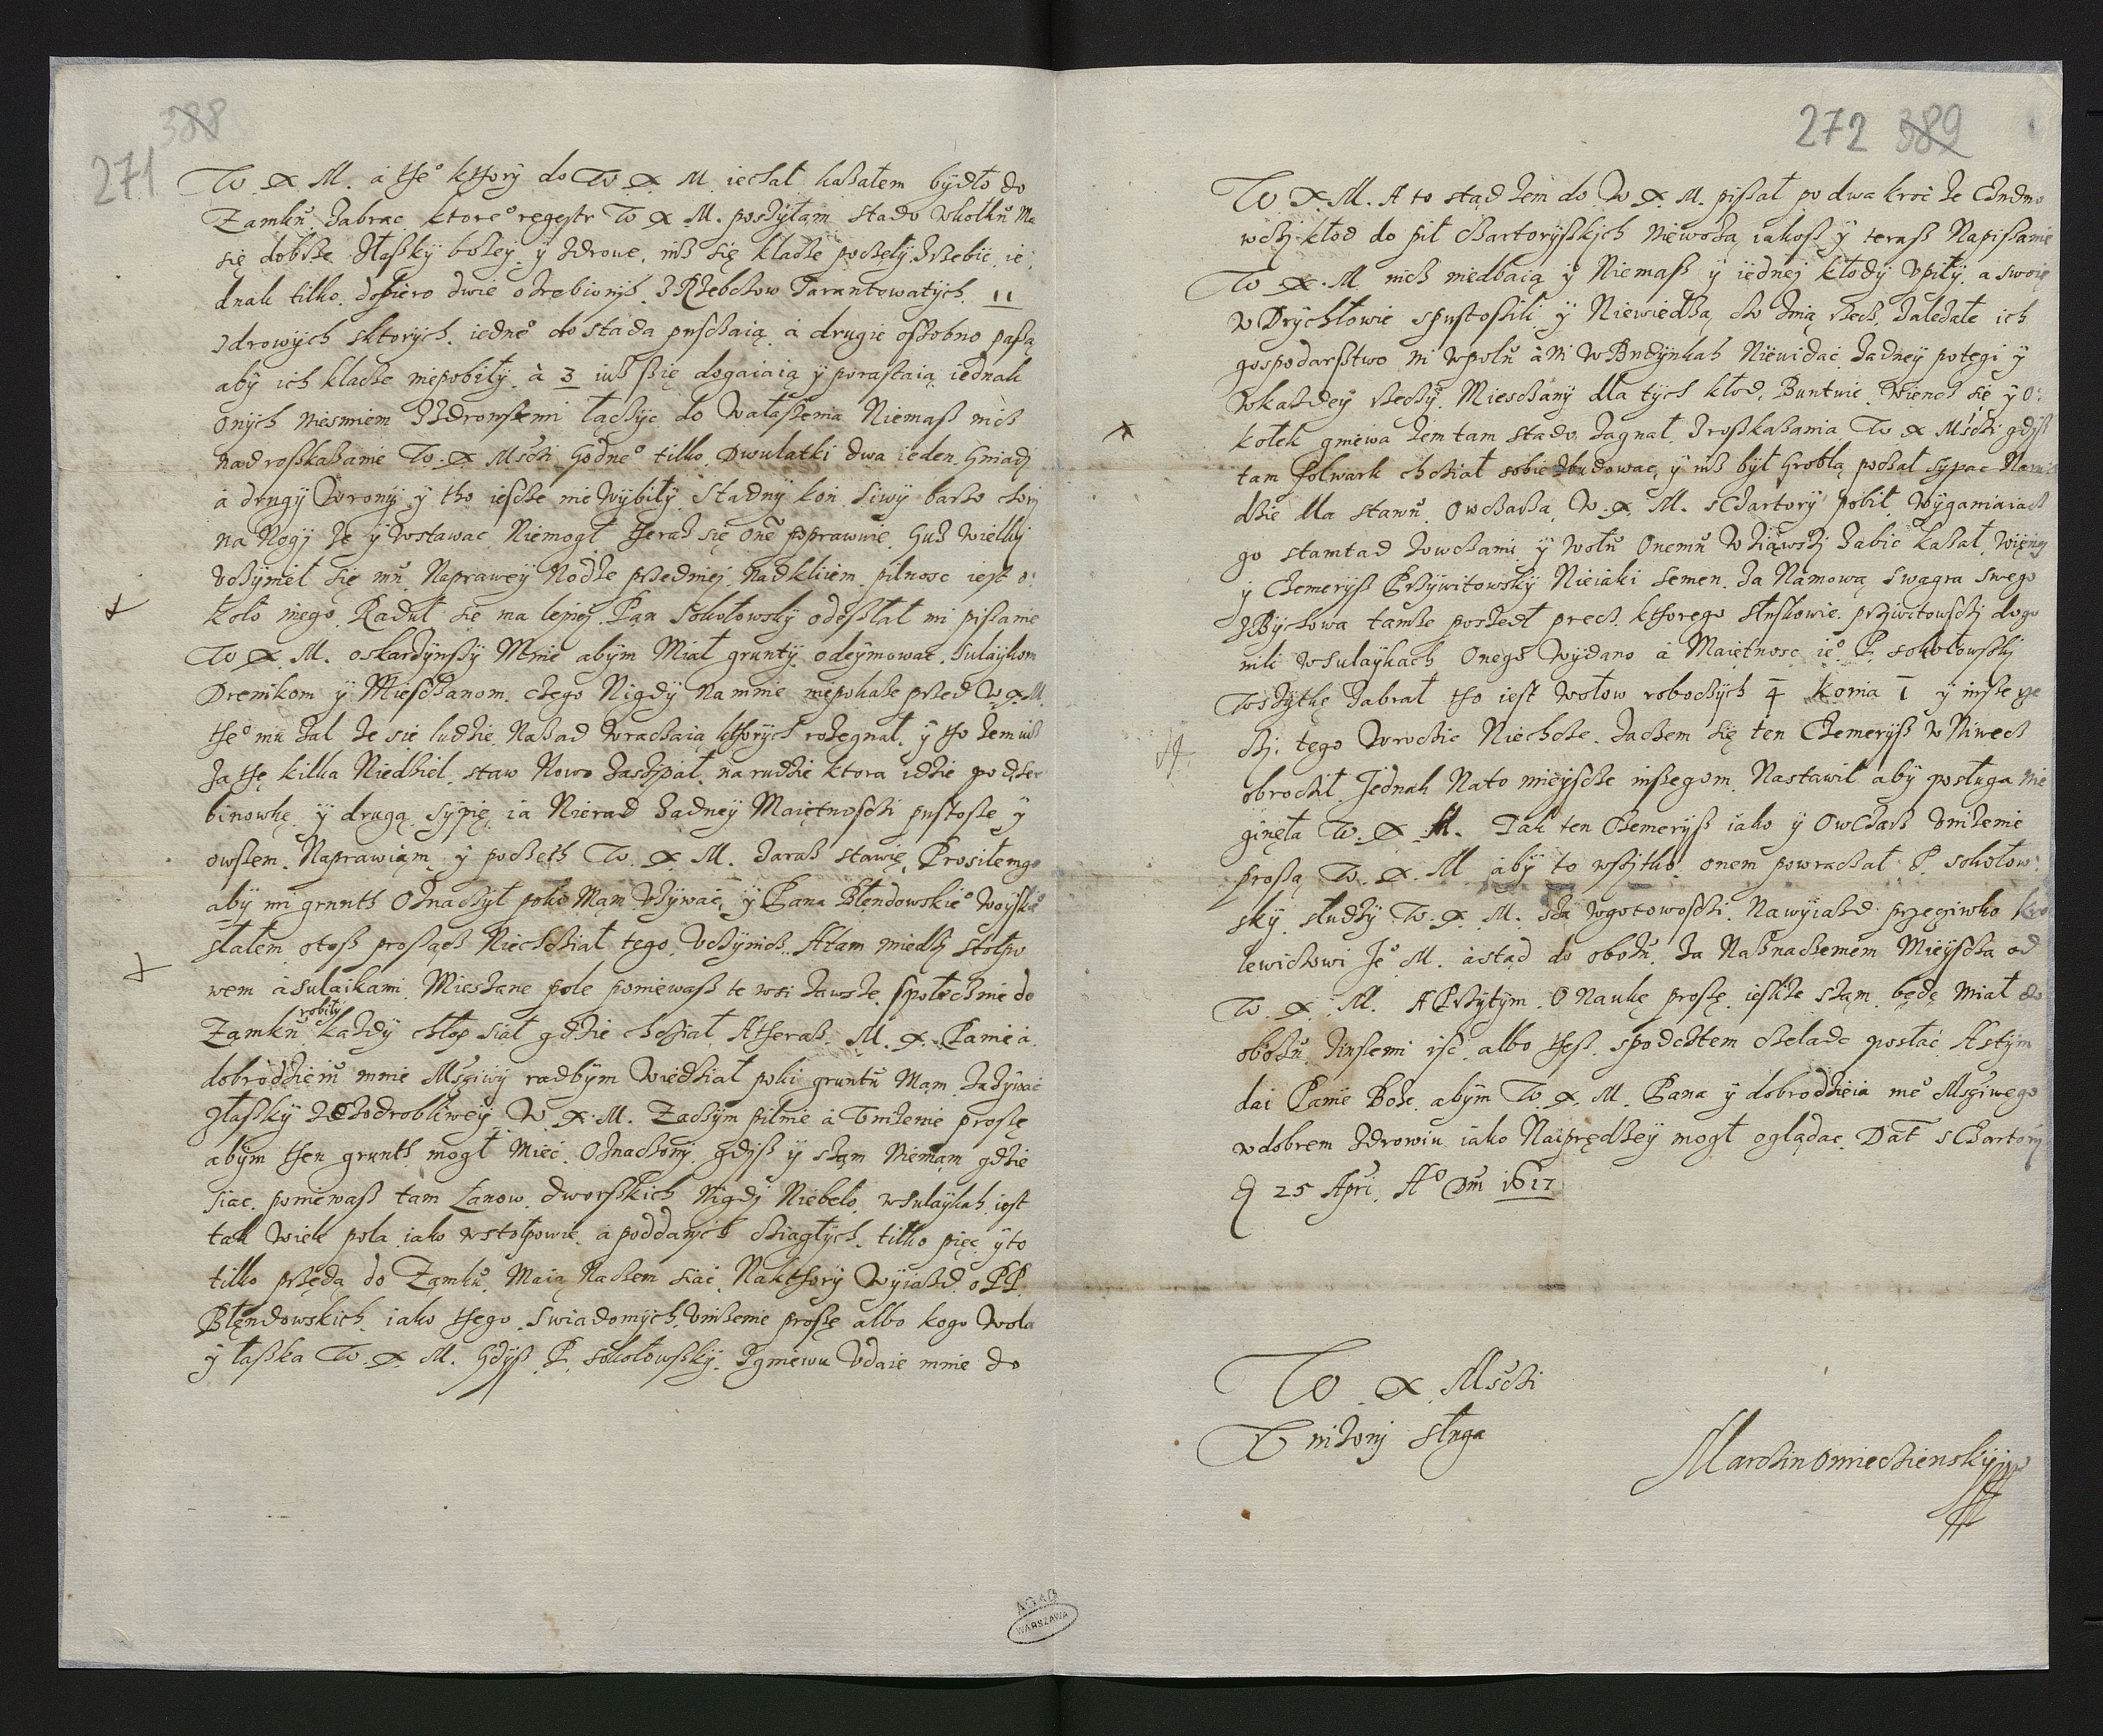 388
271
W. X. M. a theo kthory do W. X. M. iechał kazałem bydło do
Zamku zabrac ktoreo regestr W X M. posyłam stado wkołku Ma
się dobrze złasky bożey y zdrowe, iuż się klacze poczęly zrzebic, ie:
dnak tilko dopiero dwie ozrebionych. Zrzebczow Tarantowatych 11
zdrowych sktorych iedneo do stada puszczaią a drugie osobno pasą
aby ich klacze niepobiły a 3 iuż się dogaiaią y porastaią iednak
onych niesmiem Zzdrowszemi łączyc do wałaszenia Niemasz nicz
nad roskazanie W. X. Msczi godneo tilko Dwulatki dwa ieden Gniady
a drugy Wrony y tho iescze nie wybiły Stadny kon siwy barzo chory
na Nogy ze y wstawac Niemogł theraz się one poprawuie. Guz wielky
vczynieł się mu Naprawey Nodze przedniej nadkliiem pilnosc iest o:
koło niego Raduł sie ma lepiej Pan Sokołowsky odesłał mi pisanie
W X. M. oskarzywszy Mnie abym Miał grunty odeymowac Sulaykom
Drenikom y Miesczanom czego Nigdy na mnie niepokaze przed W. X. M.
theo mu zal ze sie ludzie Nazad wraczaią kthorych rozegnał y tho zem iuż
za the kilka Niedziel staw Nowo zasypał na rudzie ktora idzie podser
binowkę y drugą sypię ia Nierad zadney Maiętnosczi pustosze y
owszem Naprawiam y poczeth W. X. M. zaraz stawię Prosiłemgo
aby mi grunth Oznaczył poko Mąm Używać y Pana Błendowskieo woyskieo
słałem otosz prosząc Niechcział tego Uczynicz Atam miedzy Stołpo
wem a Sulaikami Miesczane pole poniewasz te wsi zawsze społecznie do
Zamku robiły kazdy chłop siał gdzie chciał Atheraz M. X. Panie a
dobrodzieiu mnie Msciwy radbym wiedział poki gruntu Mąm zazywac
złasky szczodrobliwey W X. M. Zaczym pilnie a Unizenie prosze
abym then grunth mogł Miec Oznaczony gdysz y sząm Niemąm gdzie
siac poniewasz tam Łanow dworskich Nigdy Niebeło wsulaykah iest
tak wiele pola iako wstołpowie a poddanych cziagłych tilko pięc y to
tilko przędą do Zamku Maią Naczem siać Nakthory wyiazd o PP.
Błęndowskich iako thego Swiadomych Unizenie proszę albo kogo wola
y łaska W. X. M. Gdysz P. Sokołowsky zgniewu Udaie mnie do
272 389
W. X. M. A to stąd zem do W X. M. pisał po dwa kroc ze Chudno
wczy kłod do pił Czartoryskych Niewożą iakosz y teraz Napisanie
W X. M. nicz niedbaią y Niemasz y iednej kłody Upiły a swoię
w Drychłowie spustosili y Niewiedzą czo znią rzecz zaledałe ich
gospodarstwo ni wpolu ani wBudynkah Niewidać zadney potęgi y
wkazdey rzeczy Miesczany dla tych kłod Buntuie Wiencz sie y O:
kołek gniewa zem tam stado zagnał zroskazania W X Msczi gdysz
tam folwark chciał sobie zbudowac y iuż był Groblą począł sypac
dzie dla stawu Owczarza W. X. M. sCzartory pobił wyganiaiacz
go stamtad zowczami y wołu Onemu Uziąwszy zabić kazał, więncz
y Czemerysz Przywitowsky Nieiaki Semen za Namową Swagra Swego
zBychowa tamze poszedł precz kthorego Słuskowie przywitowsczy dogo
nili wSulaykach Onego wydano a Maiętnosc ieo P. Sokołowsky
wszytkę zabrał tho iest wołow roboczych 4 konia 1 y insze rze
czy tego wroczic Niechcze zaczem się ten Czemerysz wNiwecz
obroczył Jednak Nato mieyscze inszegom Nastawił aby posługa nie
ginęła W. X. M. Tak ten Czemerysz iako y Owczarz Unizenie
proszą W. X. M aby to wszytko onem powraczał P. Sokołow:
sky słudzy W. X. M. są wgotowosczi Nawyiazd przeciwko kro
lewiczowi Jeo M. astąd do obozu za Naznaczeniem Mieyscza od
W. X. M. APrzytym O Naukę proszę iesliże sząm będę Miał do
obozu zinszemi isć albo thesz spodcztem czeladz posłać Astym
dai Panie Boze abym W. X. M. Pana y dobrodzieia meo Msciwego
wdobrem zdrowiu iako Naiprędzey mogł oglądac. Dat sCzartory
25 Apri Ao Dni 1617
W X Msczi
Unizony sługa
Marczin Omiecziensky
AGAD
WARSZAWA